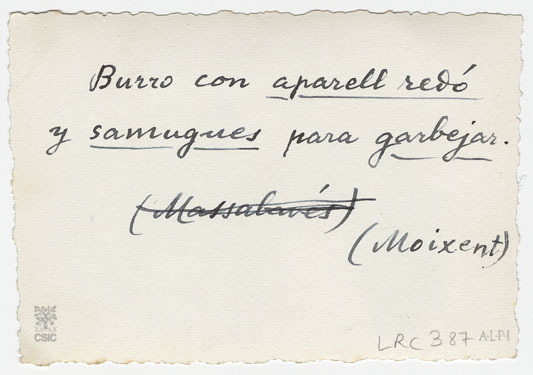 Burro con aparell redó
y samugues para garbejar.
(Massalavés)
(Moixent)
CSIC
LRC 387 ALPI